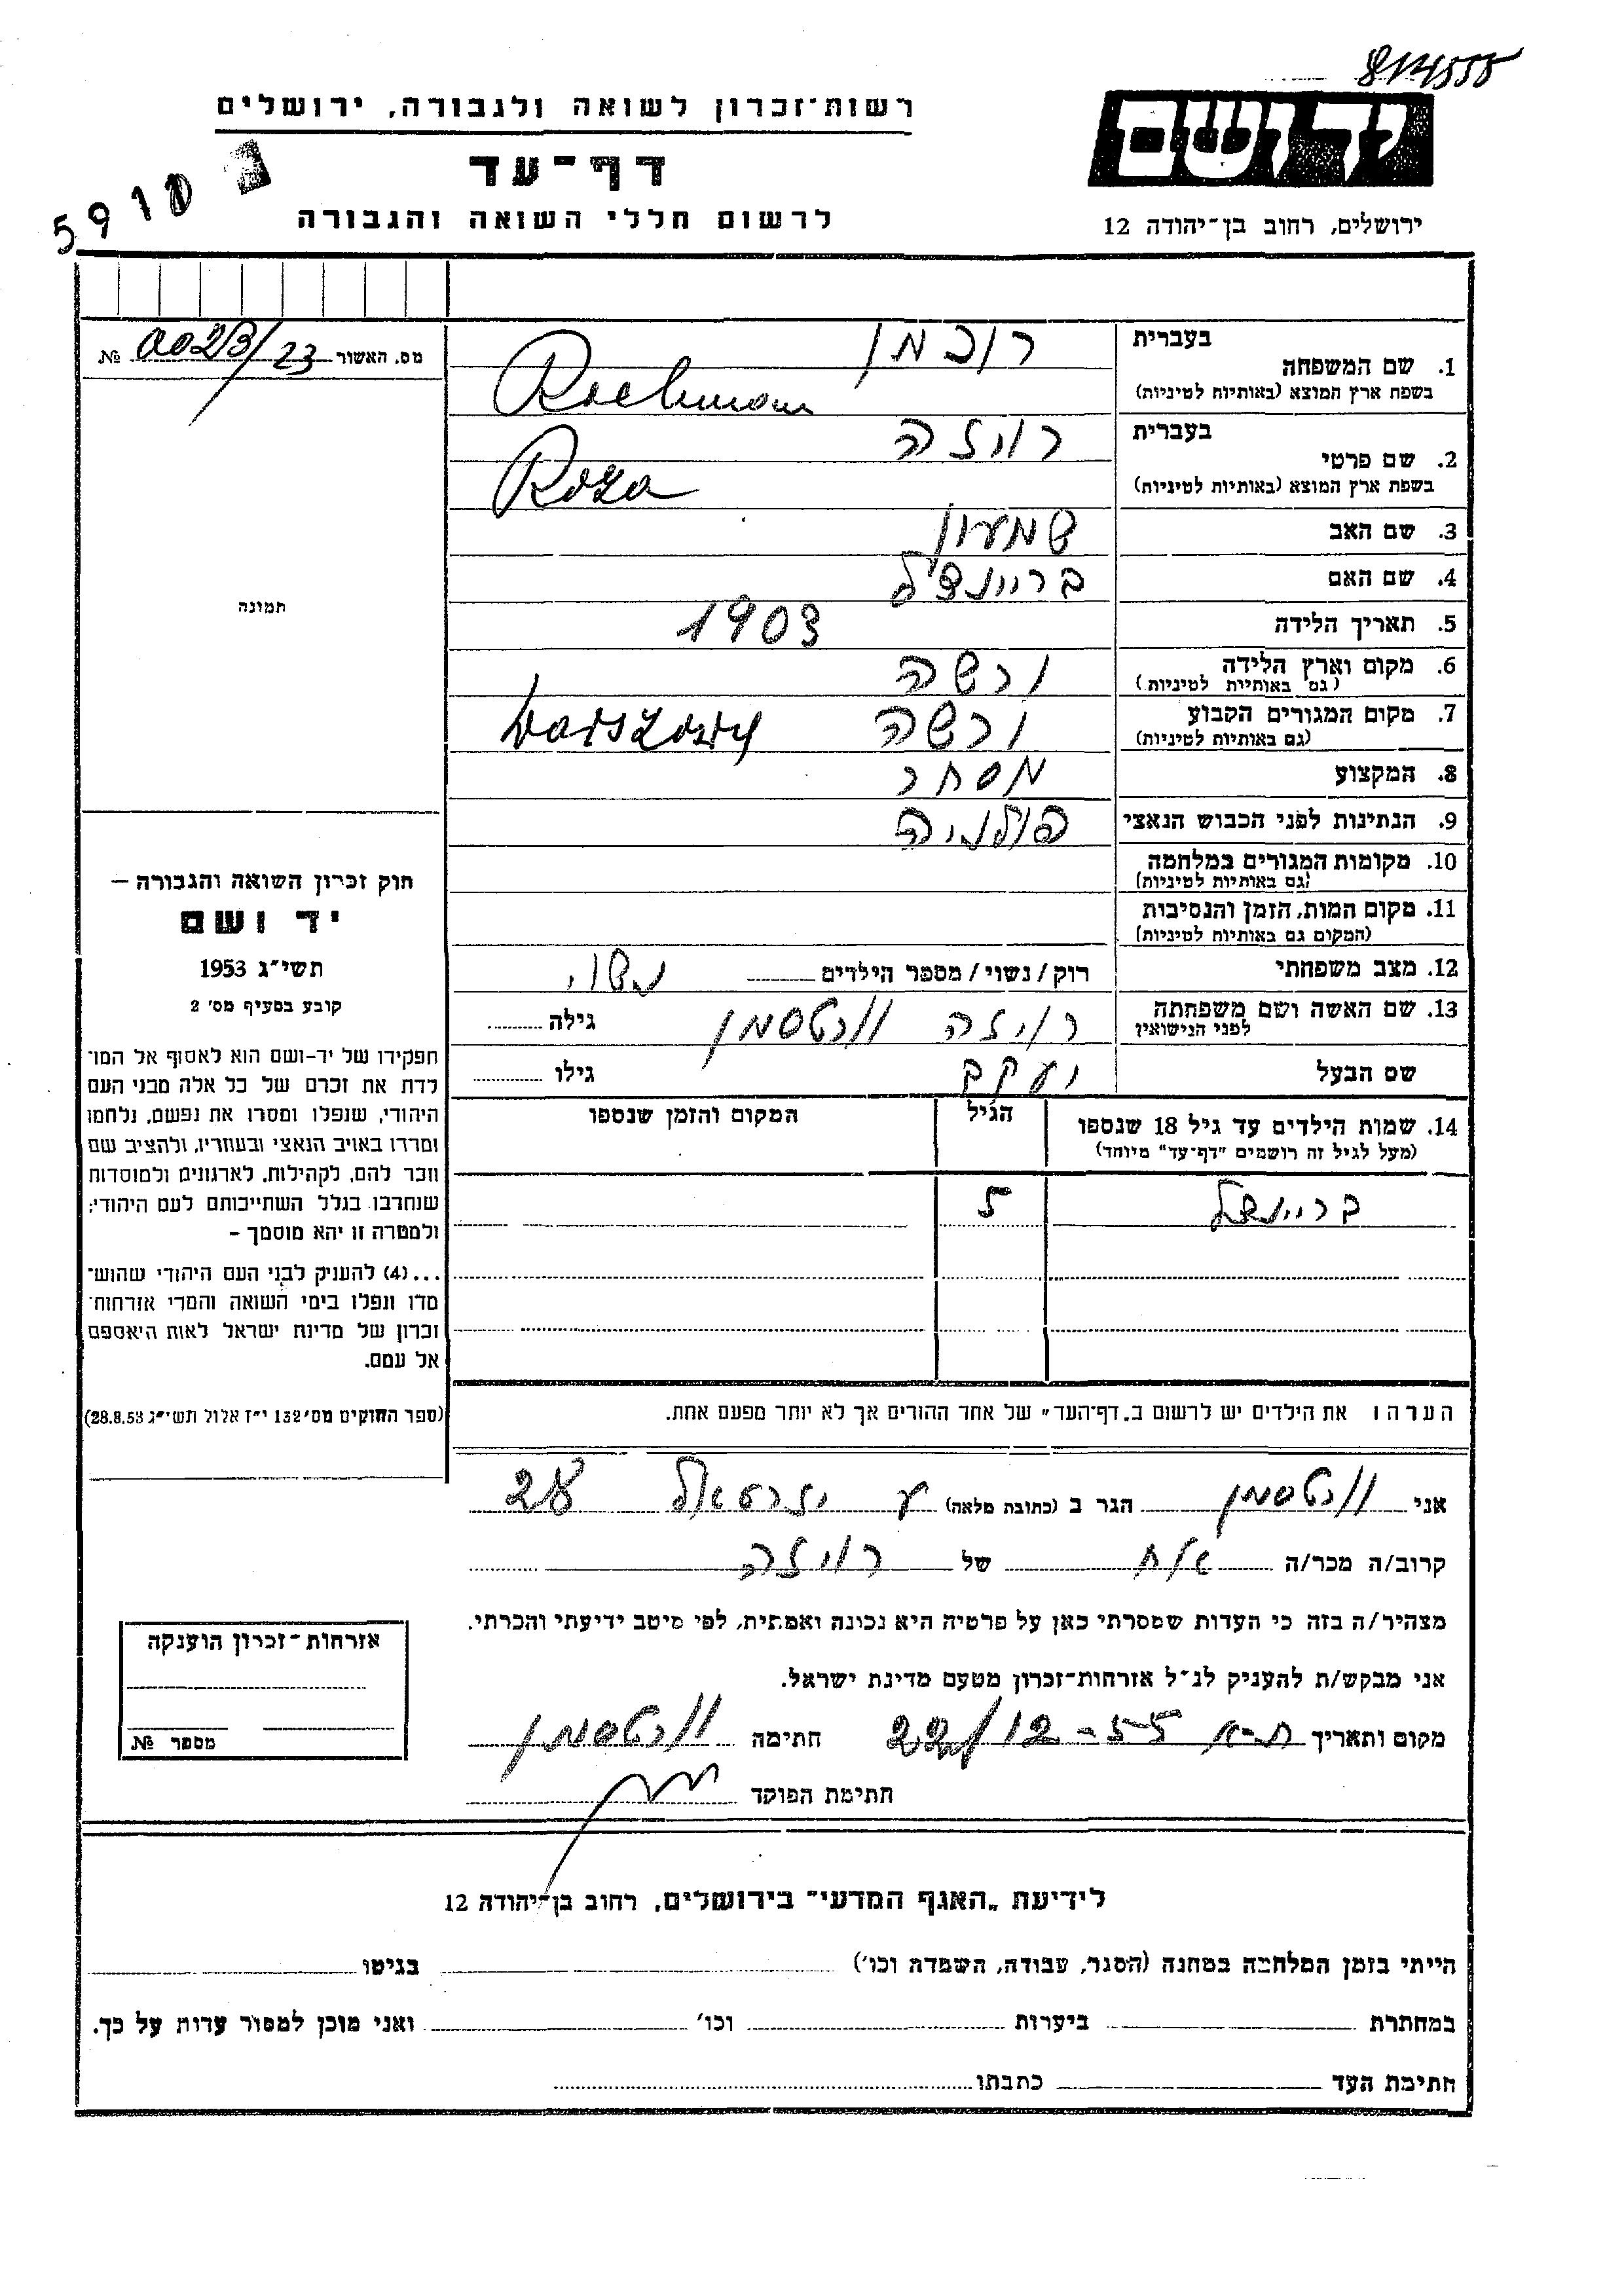 רשות־זכרון לשואה ולגבורה, ירושלים
דף־עד
לרשום חללי השואה והגבורה
יד ושם
ירושלים, רחוב בן־יהודה 12
מס. האשור № 0023/23
1. שם המשפחה
בעברית רוכמן
בשפת ארץ המוצא (באותיות לטיניות) Rochman
2. שם פרטי
בעברית רוזה
בשפת ארץ המוצא (באותיות לטיניות) Roza
3. שם האב שמעון
4. שם האם בריינצ'ל
5. תאריך הלידה 1903
6. מקום וארץ הלידה ורשה
(גם באותיות לטיניות)
7. מקום המגורים הקבוע ורשה
(גם באותיות לטיניות)
8. המקצוע מסחר
9. הנתינות לפני הכבוש הנאצי פולניה
10. מקומות המגורים במלחמה
(גם באותיות לטיניות)
11. מקום המות, הזמן והנסיבות
(המקום גם באותיות לטיניות)
12. מצב משפחתי רוק/נשוי/מספר הילדים נשוי
13. שם האשה ושם משפחתה רויזה וורטסמן גילה
לפני הנישואין
שם הבעל יעקב גילו
14. שמות הילדים עד גיל 18 שנספו הגיל המקום והזמן שנספו
(מעל לגיל זה רושמים "דף־עד" מיוחד)
בריינצל 5
תמונה
חוק זכרון השואה והגבורה –
יד ושם
תשי״ג 1953
קובע בסעיף מס׳ 2
תפקידו של יד-ושם הוא לאסוף אל המו־
לדת את זכרם של כל אלה מבני העם
היהודי, שנפלו ומסרו את נפשם, נלחמו
ומרדו באויב הנאצי ובעוזריו, ולהציב שם
וזכר להם, לקהילות, לארגונים ולמוסדות
שנחרבו בגלל השתייכותם לעם היהודי;
ולמטרה זו יהא מוסמך –
...(4) להעניק לבני העם היהודי שהוש־
מדו ונפלו בימי השואה והמרי אזרחות־
זכרון של מדינת ישראל לאות היאספם
אל עמם.
(ספר החוקים מס׳ 132 י״ז אלול תשי״ג 28.8.53)
הערה: את הילדים יש לרשום ב„דף־העד" של אחד ההורים אך לא יותר מפעם אחת.
אני וורטסמן הגר ב (כתובת מלאה)
קרוב/ה מכר/ה אח של רויזה
מצהיר/ה בזה כי העדות שמסרתי כאן על פרטיה היא נכונה ואמתית, לפי מיטב ידיעתי והכרתי.
אני מבקש/ת להעניק לנ״ל אזרחות־זכרון מטעם מדינת ישראל.
מקום ותאריך ת-א 22/12-55 חתימה וורטסמן
חתימת הפוקד
אזרחות־זכרון הוענקה
מספר №
לידיעת „האגף המדעי" בירושלים, רחוב בן־יהודה 12
הייתי בזמן המלחמה במחנה (הסגר, עבודה, השמדה וכו׳) בגיטו
במחתרת ביערות וכו׳ ואני מוכן למסור עדות על כך.
חתימת העד כתבתו